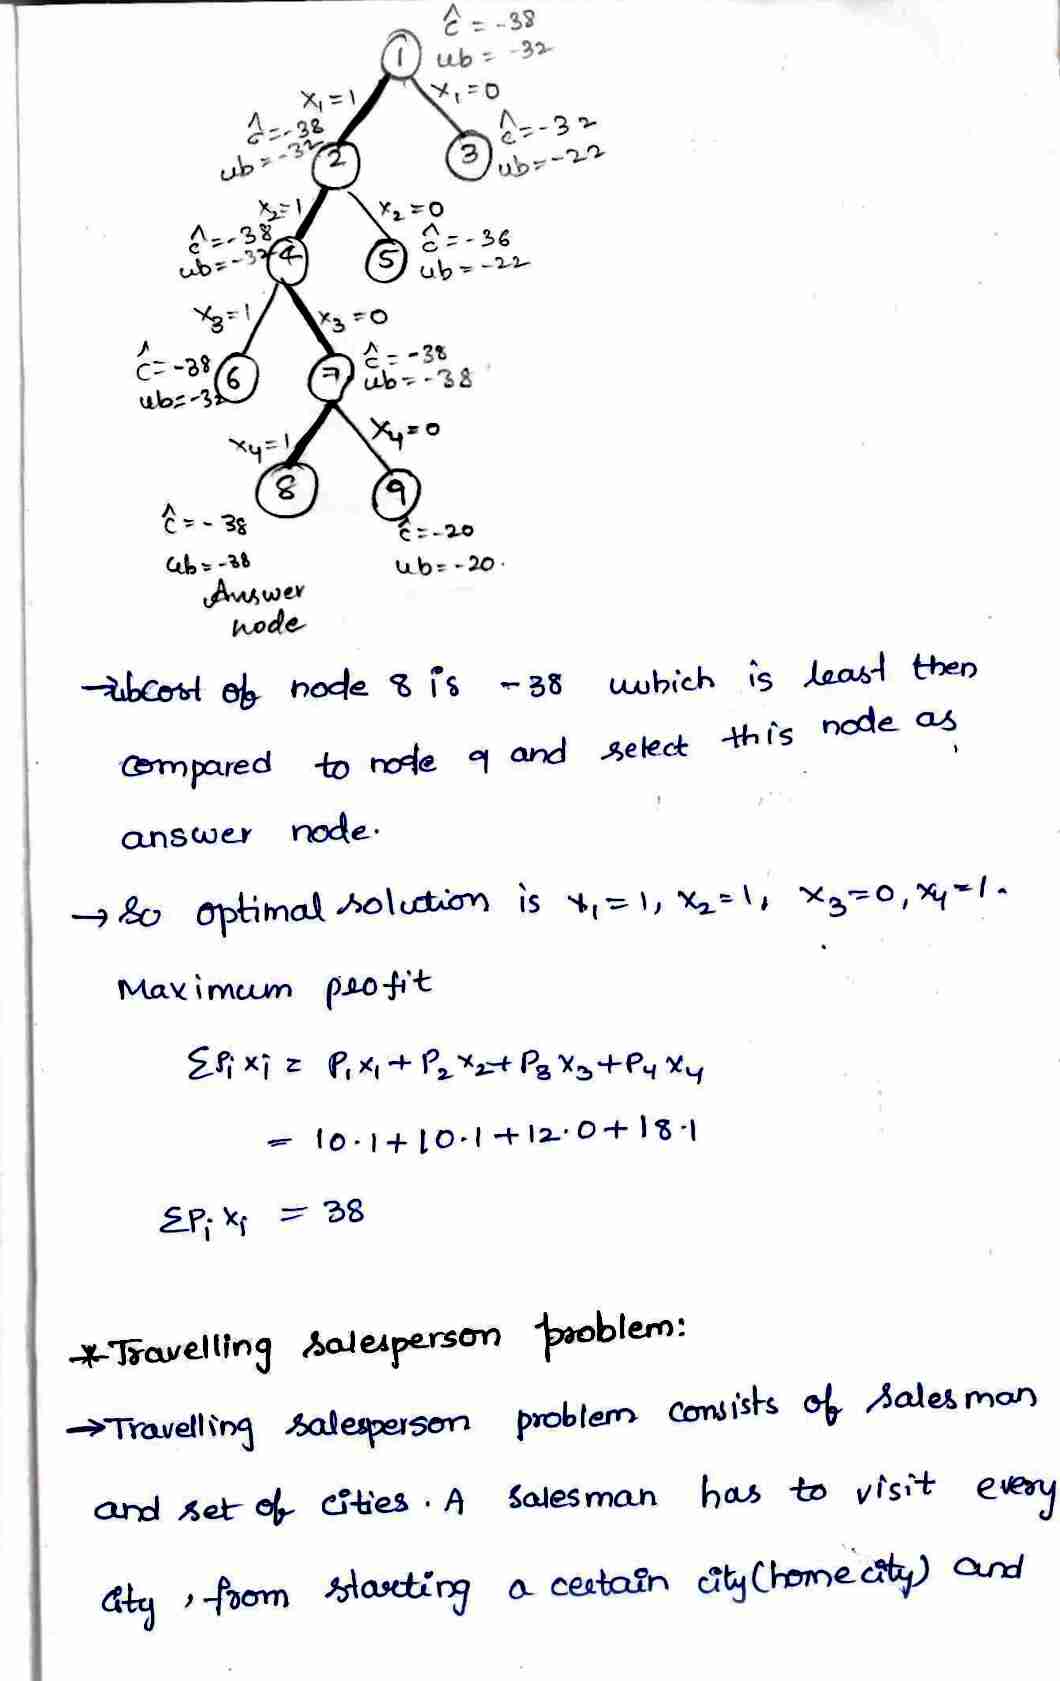 ĉ = -38
1 ub = -32
x₁=1 x₁=0
ĉ=-38 ĉ=-32
ub=-32 2 3 ub=-22
x₂=1 x₂=0
ĉ=-38 ĉ=-36
ub=-32 4 5 ub=-22
x₃=1 x₃=0
ĉ=-38 6 7 ĉ=-38
ub=-32 ub=-38
x₄=1 x₄=0
8 9
ĉ=-38 ĉ=-20
ub=-38 ub=-20.
Answer
node
→ubcost of node 8 is -38 which is least then
compared to node 9 and select this node as
answer node.
→ So optimal solution is x₁=1, x₂=1, x₃=0, x₄=1.
Maximum profit
Σpᵢxᵢ = P₁x₁+P₂x₂+P₃x₃+P₄x₄
= 10.1+10.1+12.0+18.1
ΣPᵢxᵢ = 38
*Travelling salesperson problem:
→Travelling salesperson problem consists of salesman
and set of cities. A salesman has to visit every
city, from starting a certain city(home city) and